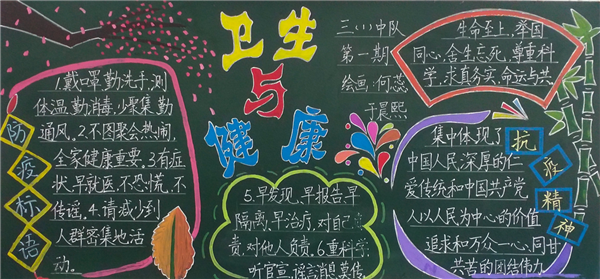 卫生
与
健康
三（1）中队
第一期
绘画：何蕊
于晨熙
防疫标语
1.戴口罩，勤洗手，测
体温，勤消毒，少聚集，勤
通风，2.不图聚会热闹，
全家健康重要，3.有症
状，早就医，不恐慌，不
传谣，4.请减少到
人群密集地活
动。
5.早发现，早报告，早
隔离，早治疗，对自己
责，对他人负责，6.重科学，
听官宣，谣言消，莫传
生命至上，举国
同心，舍生忘死，尊重科
学，求真务实，命运与共
抗疫精神
集中体现了
中国人民深厚的仁
爱传统和中国共产党
人以人民为中心的价值
追求和万众一心，同甘
苦苦的团结伟力